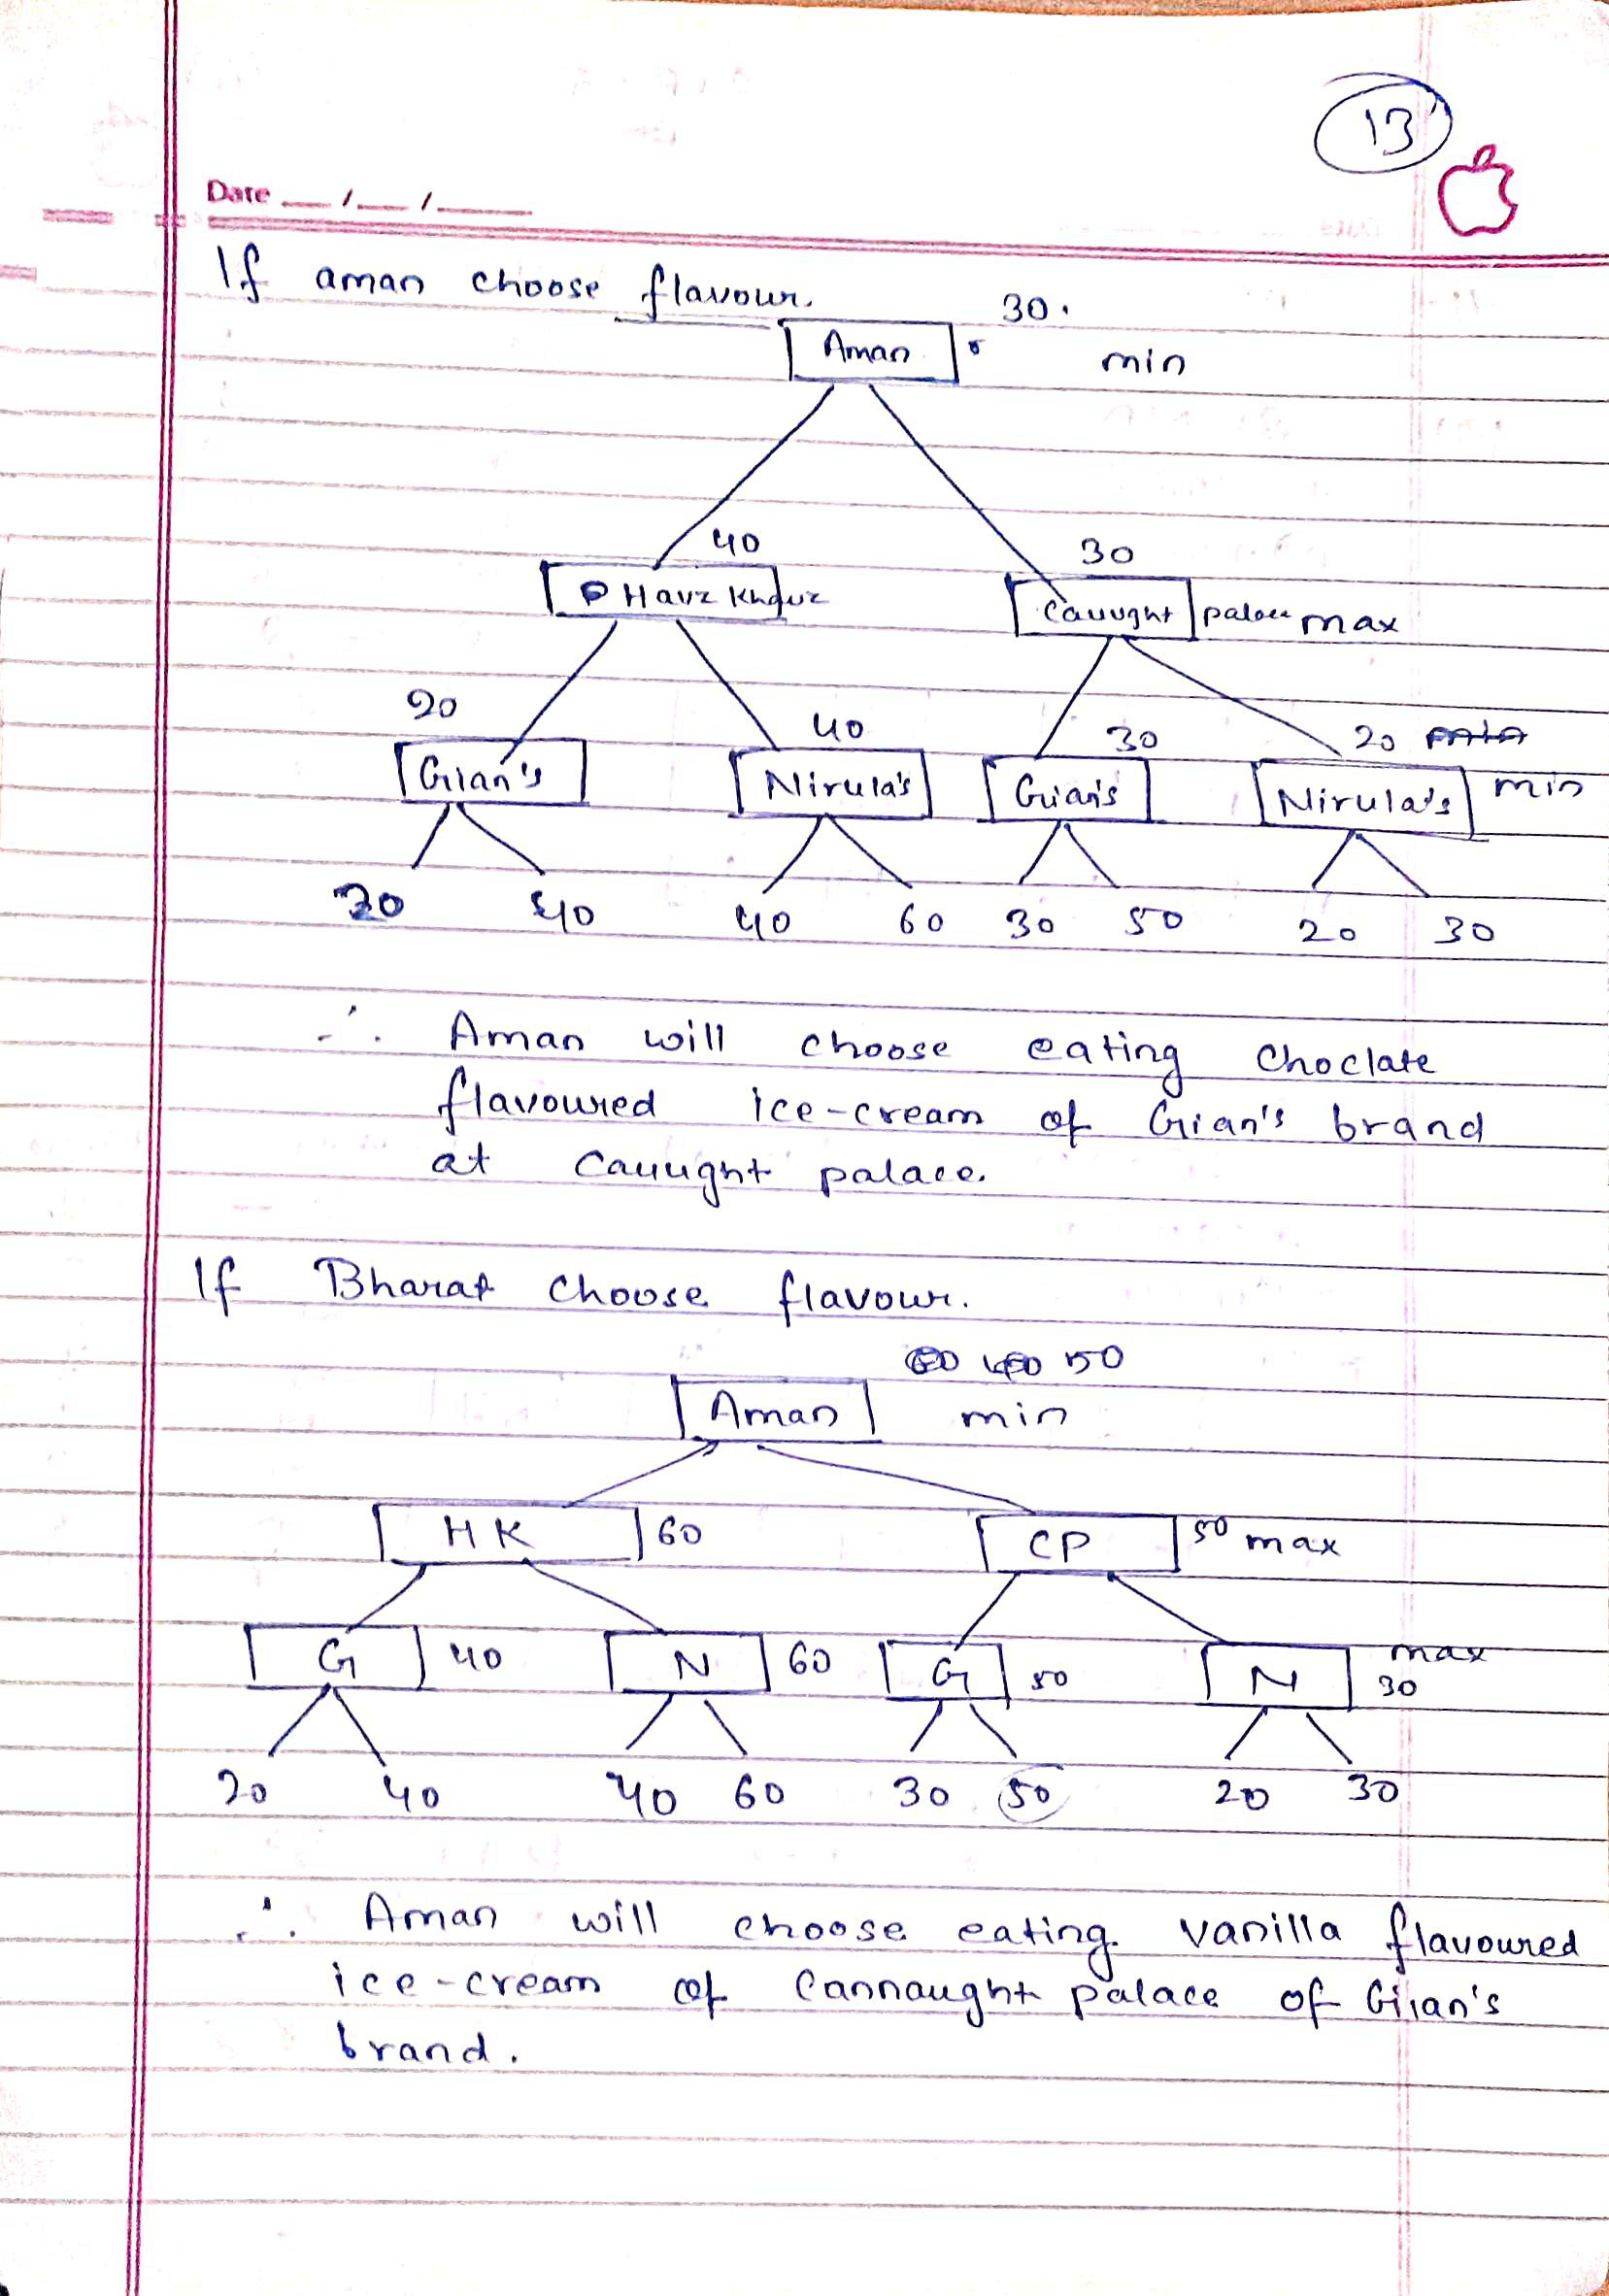 13
Date __/__/__
If aman choose flavour.
30.
Aman
min
40
30
Havz Khauz
Cauught palace max
20
40
30
20
Gian's
Nirula's
Gian's
Nirula's
min
20 40 40 60 30 50 20 30
∴ Aman will choose eating choclate
flavoured ice-cream of Gian's brand
at Cauught palace.
If Bharat choose flavour.
50
Aman min
HK 60 CP 50 max
G 40 N 60 G 50 N max
30
20 40 40 60 30 50 20 30
∴ Aman will choose eating. vanilla flavoured
ice-cream of Cannaught palace of Gian's
brand.